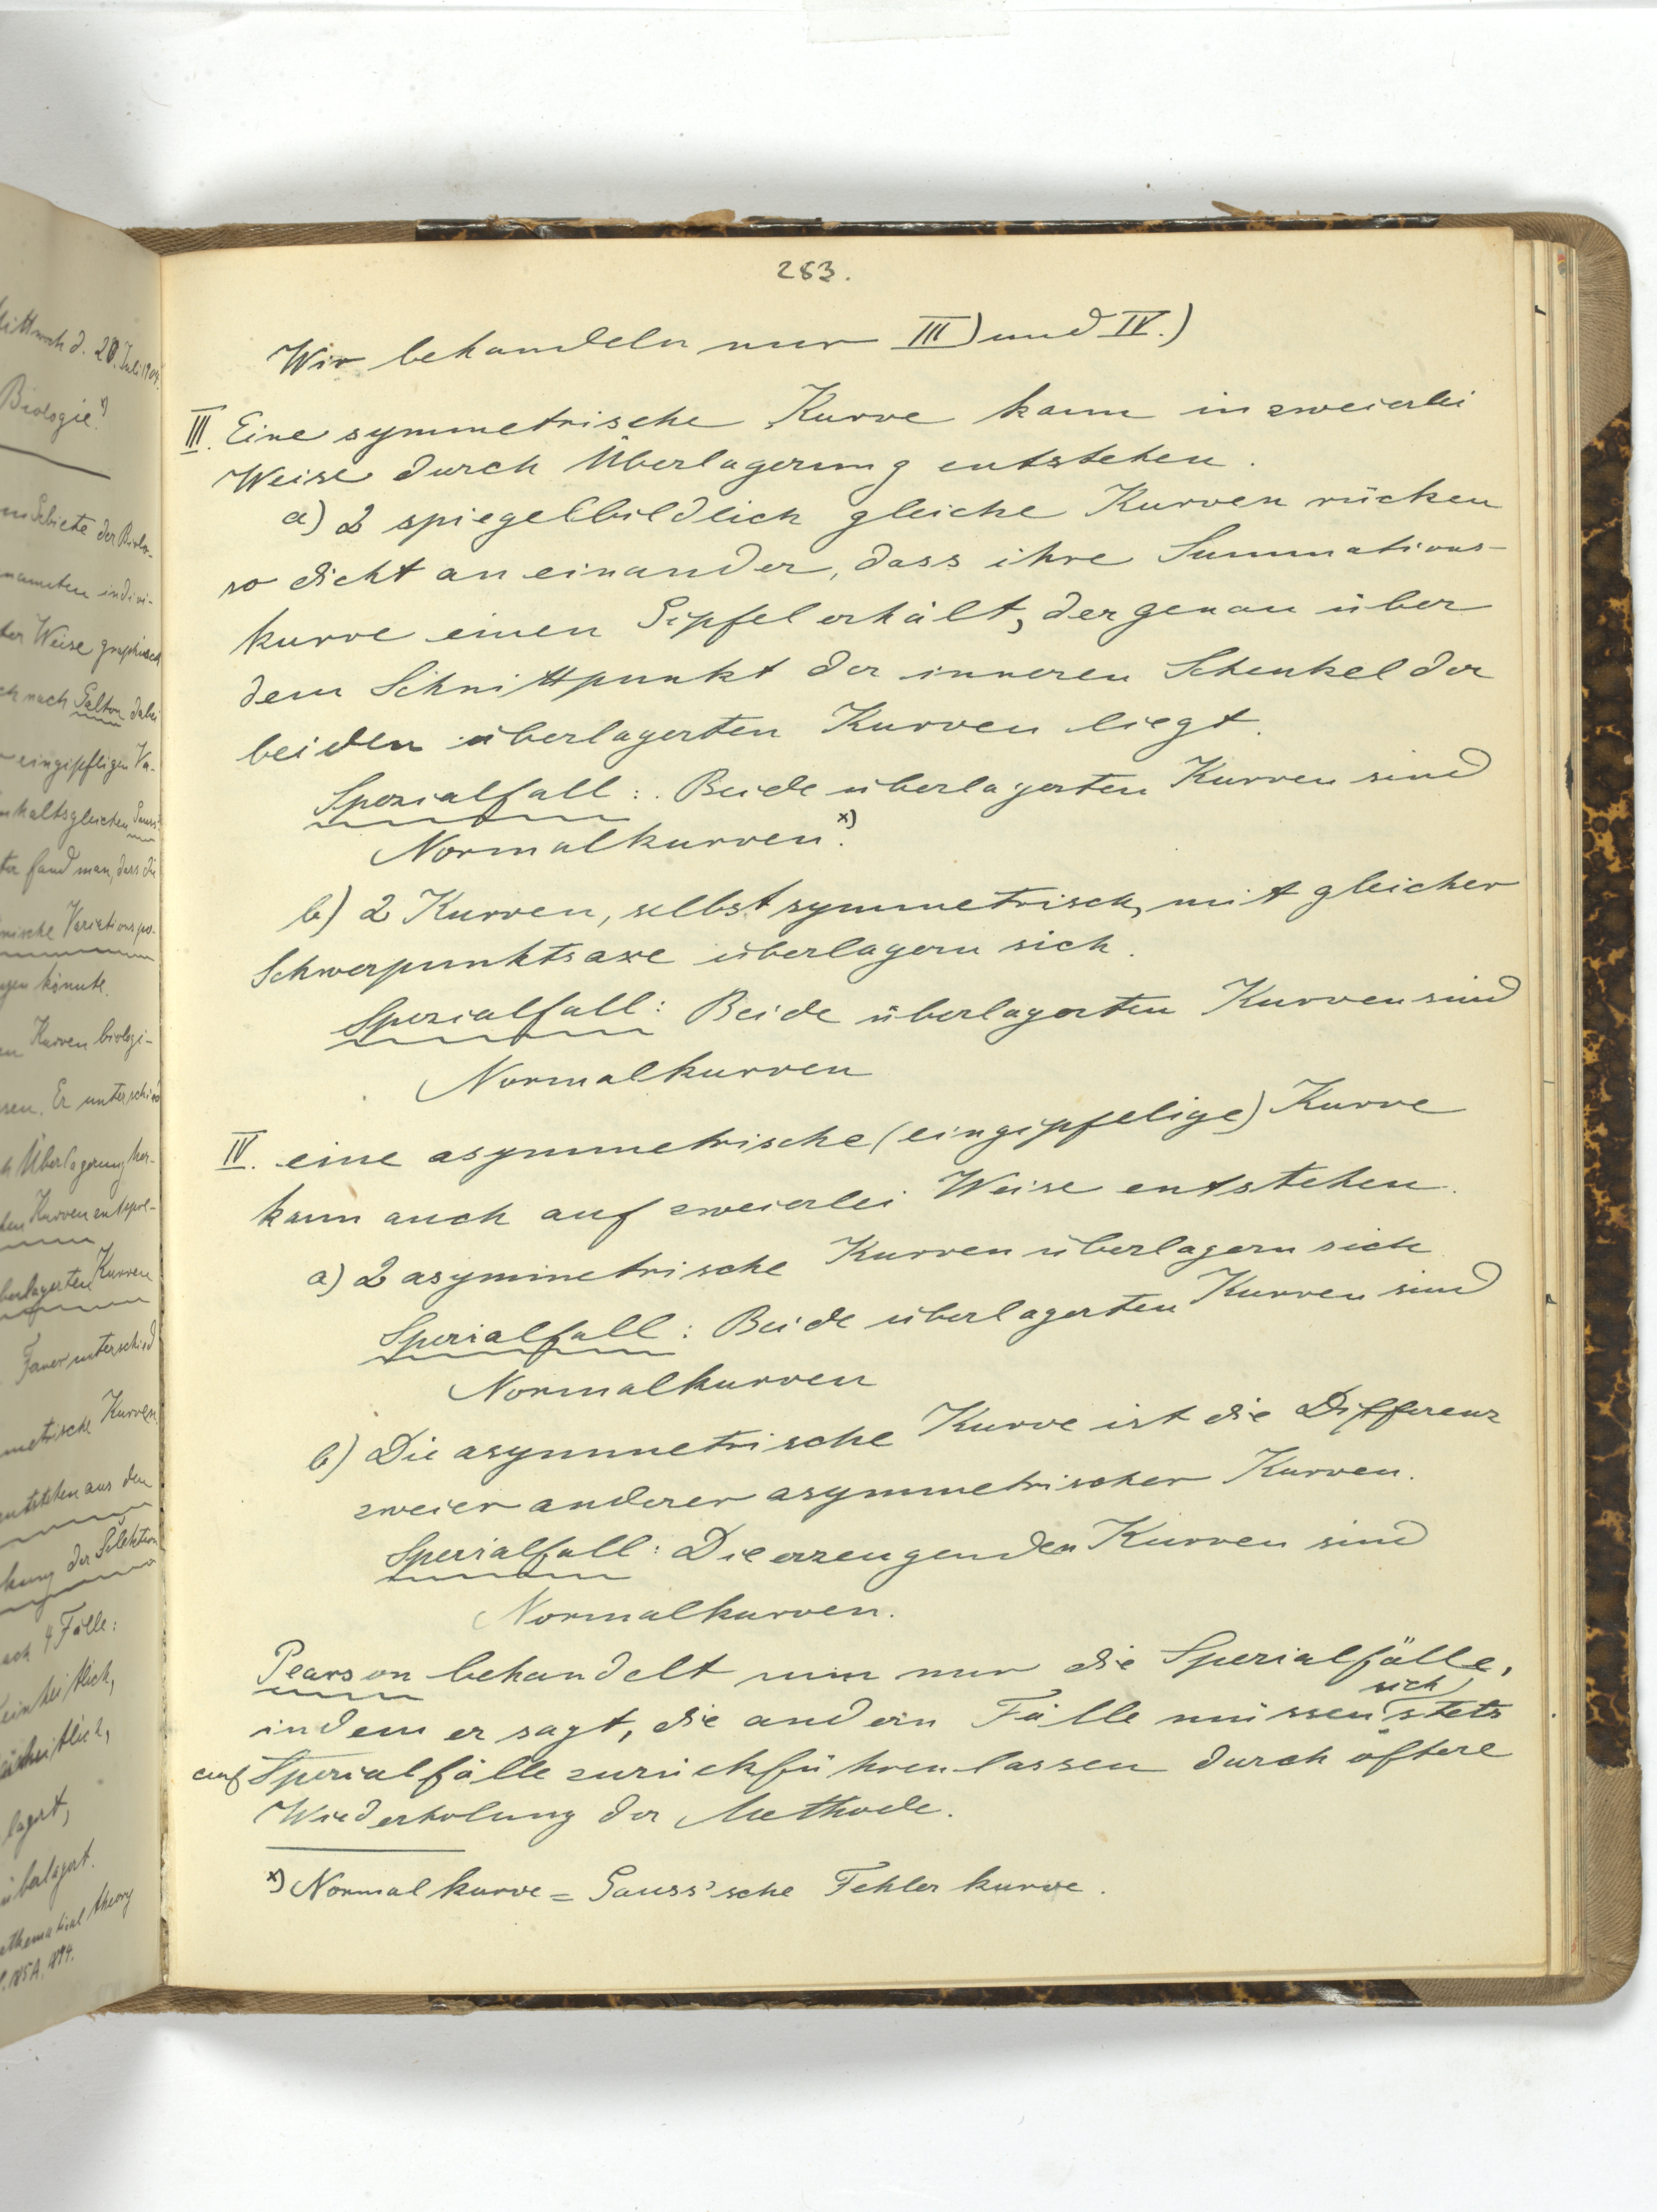 Mittwoch d. 20. Juli 1904.
Biologie.x)
Gebiete der Biolo-
nannten indivi-
ter Weise graphisch
nach Galton dabei
eingipfligen Va-
inhaltsgleichen Gauss'
fand man, dass die
Variations
könnte.
Kurven biologi-
Er unterschied
Überlagerung her-
Kurven entspre-
berlagerten Kurven
Ferner unterschied
metrische Kurven
entstehen aus den
kung der Selektion
4 Fälle:
einheitlich,
lagert,
überlagert.
mathematical theory
185A, 1894.
283.
Wir behandeln nur III) und IV.)
III. Eine symmetrische Kurve kann in zweierlei
Weise durch Überlagerung entstehen.
a) 2 spiegelbildlich gleiche Kurven rücken
so dicht an einander, dass ihre Summations-
kurve einen Gipfel erhält, der genau über
dem Schnittpunkt der inneren Schenkel der
beiden überlagerten Kurven liegt.
Spezialfall: Beide überlagerten Kurven sind
Normalkurven.x)
b) 2 Kurven, selbst symmetrisch, mit gleicher
Schwerpunktsaxe überlagern sich.
Spezialfall: Beide überlagerten Kurven sind
Normalkurven
IV. eine asymmetrische (eingipfelige) Kurve
kann auch auf zweierlei Weise entstehen.
a) 2 asymmetrische Kurven überlagern sich
Spezialfall: Beide überlagerten Kurven sind
Normalkurven
b) Die asymmetrische Kurve ist die Differenz
zweier anderer asymmetrischer Kurven.
Spezialfall: Die erzeugenden Kurven sind
Normalkurven.
Pearson behandelt nun nur die Spezialfälle,
indem er sagt, die andern Fälle müssen sich stets
auf Spezialfälle zurückführen lassen durch öftere
Wiederholung der Methode.
x) Normalkurve = Gauss'sche Fehlerkurve.